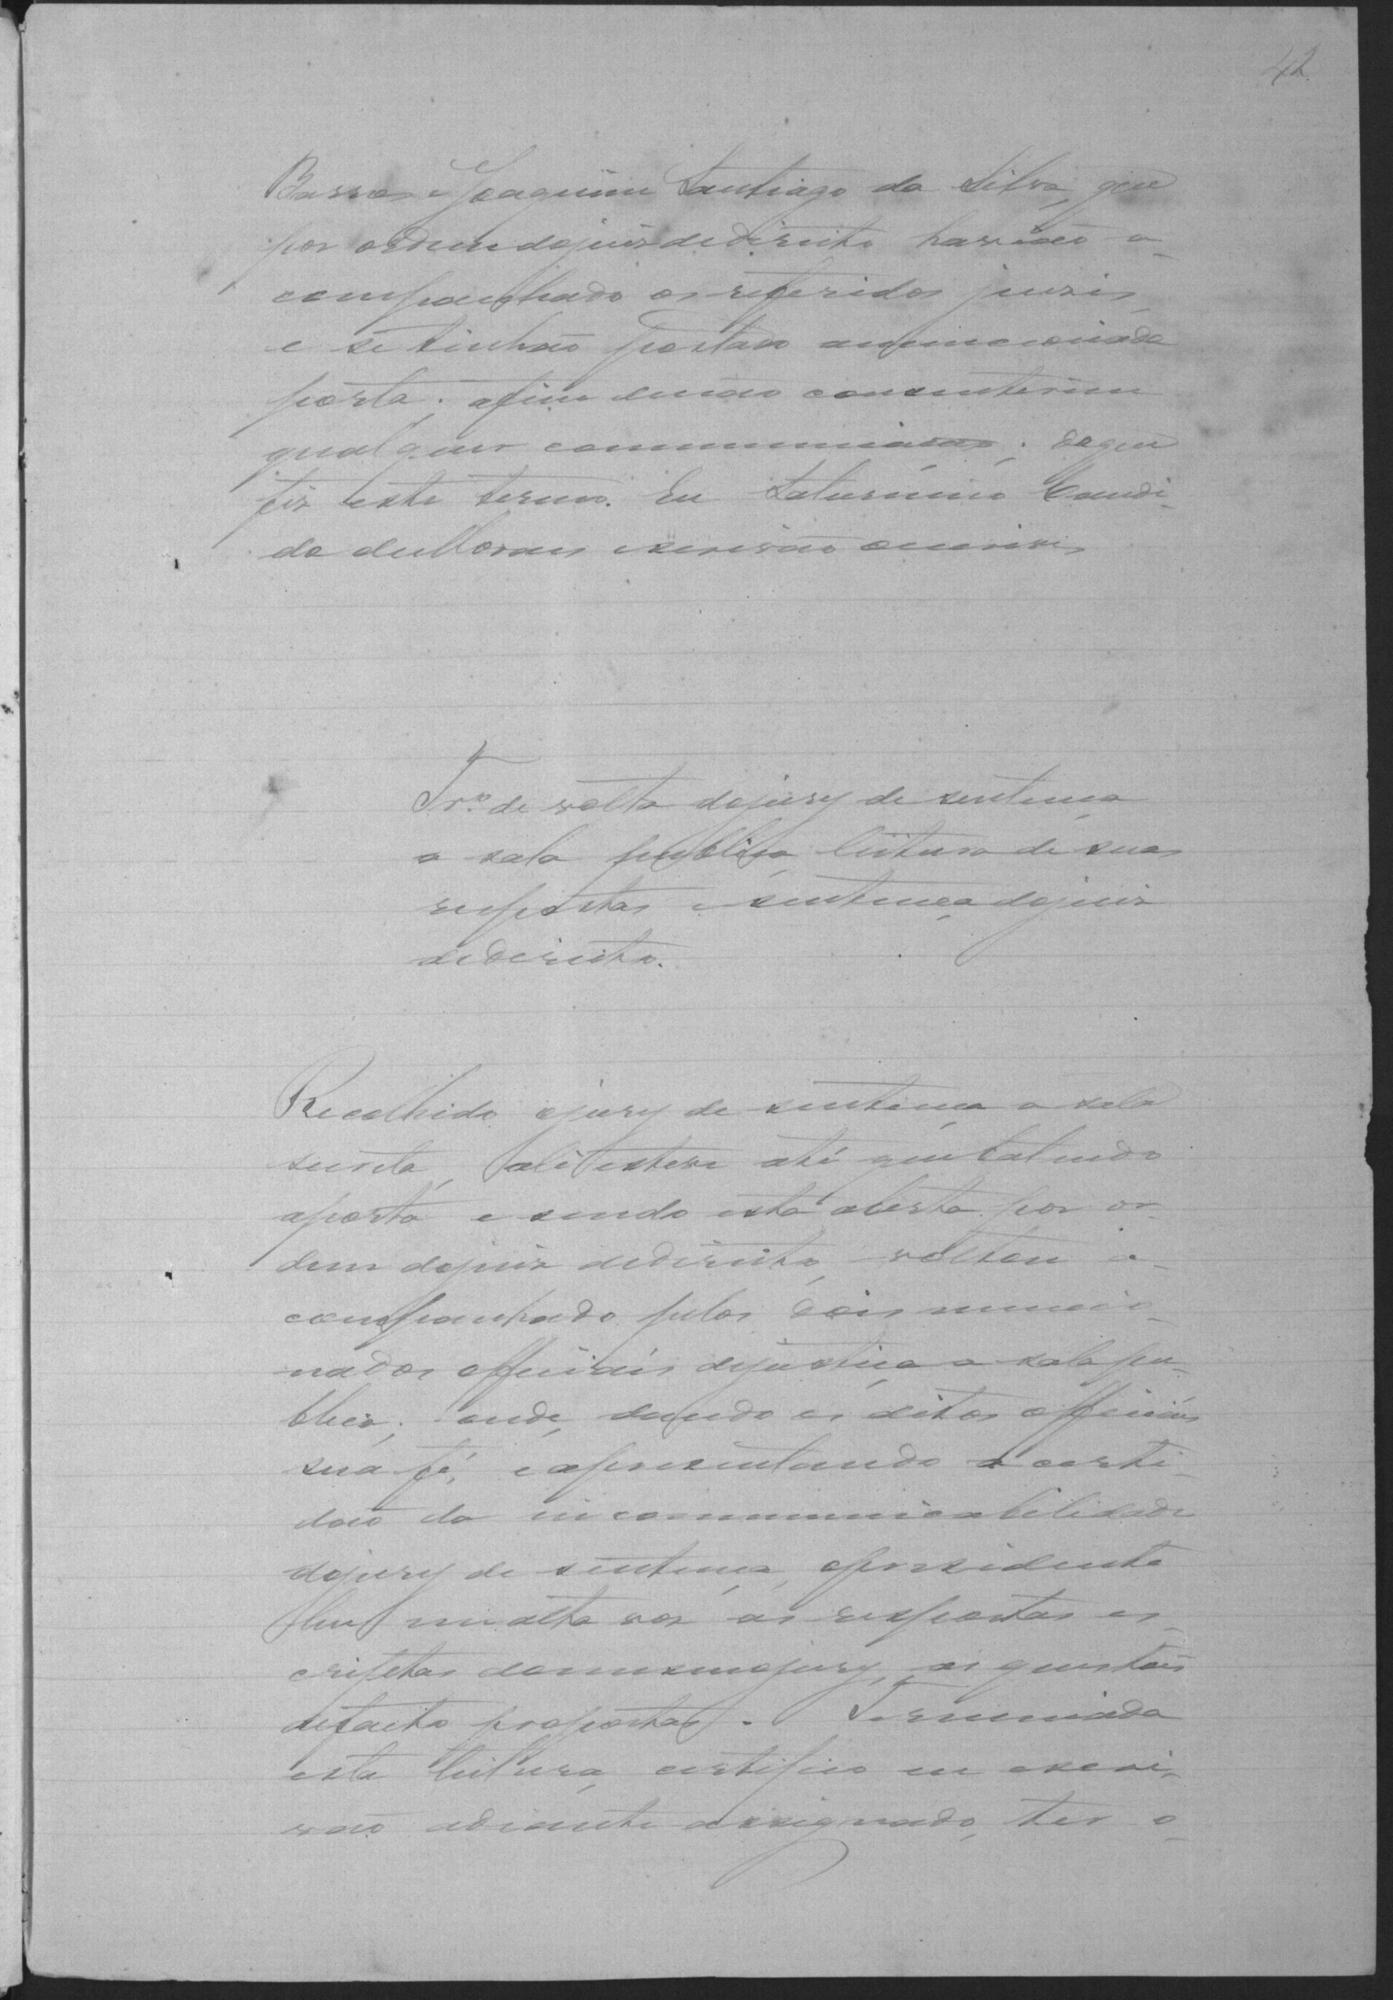 42
Barros e Joaquim Santiago da Silva, que
por ordem do juiz de direito havião a-
companhado os referidos juizes,
e se tinhão postado a mencionada
porta, afim de não consentirem
qualquer communicação; do que
fiz este termo. Eu Saturnino Candi-
do de Moraes escrivão escrevi.
Tr.º de volta do jury de sentença
a sala publica, leitura de suas
respostas e sentença do juiz
de direito.
Recolhido o jury de sentença a sala
secreta, ali esteve até que batendo
a porta e sendo esta aberta por or-
dem do juiz de direito, voltou a-
companhado pelos dois mencio-
nados officiaes de justiça a sala pu-
blica; onde, dando os ditos officiaes
sua fé, e apresentando a certi-
dão da incommunicabilidade
do jury de sentença, o presidente
leu em alta voz as respostas es-
criptas do mesmo jury, as questões
de facto propostas. Terminada
esta leitura, certifico eu escri-
vão adiante assignado, ter o